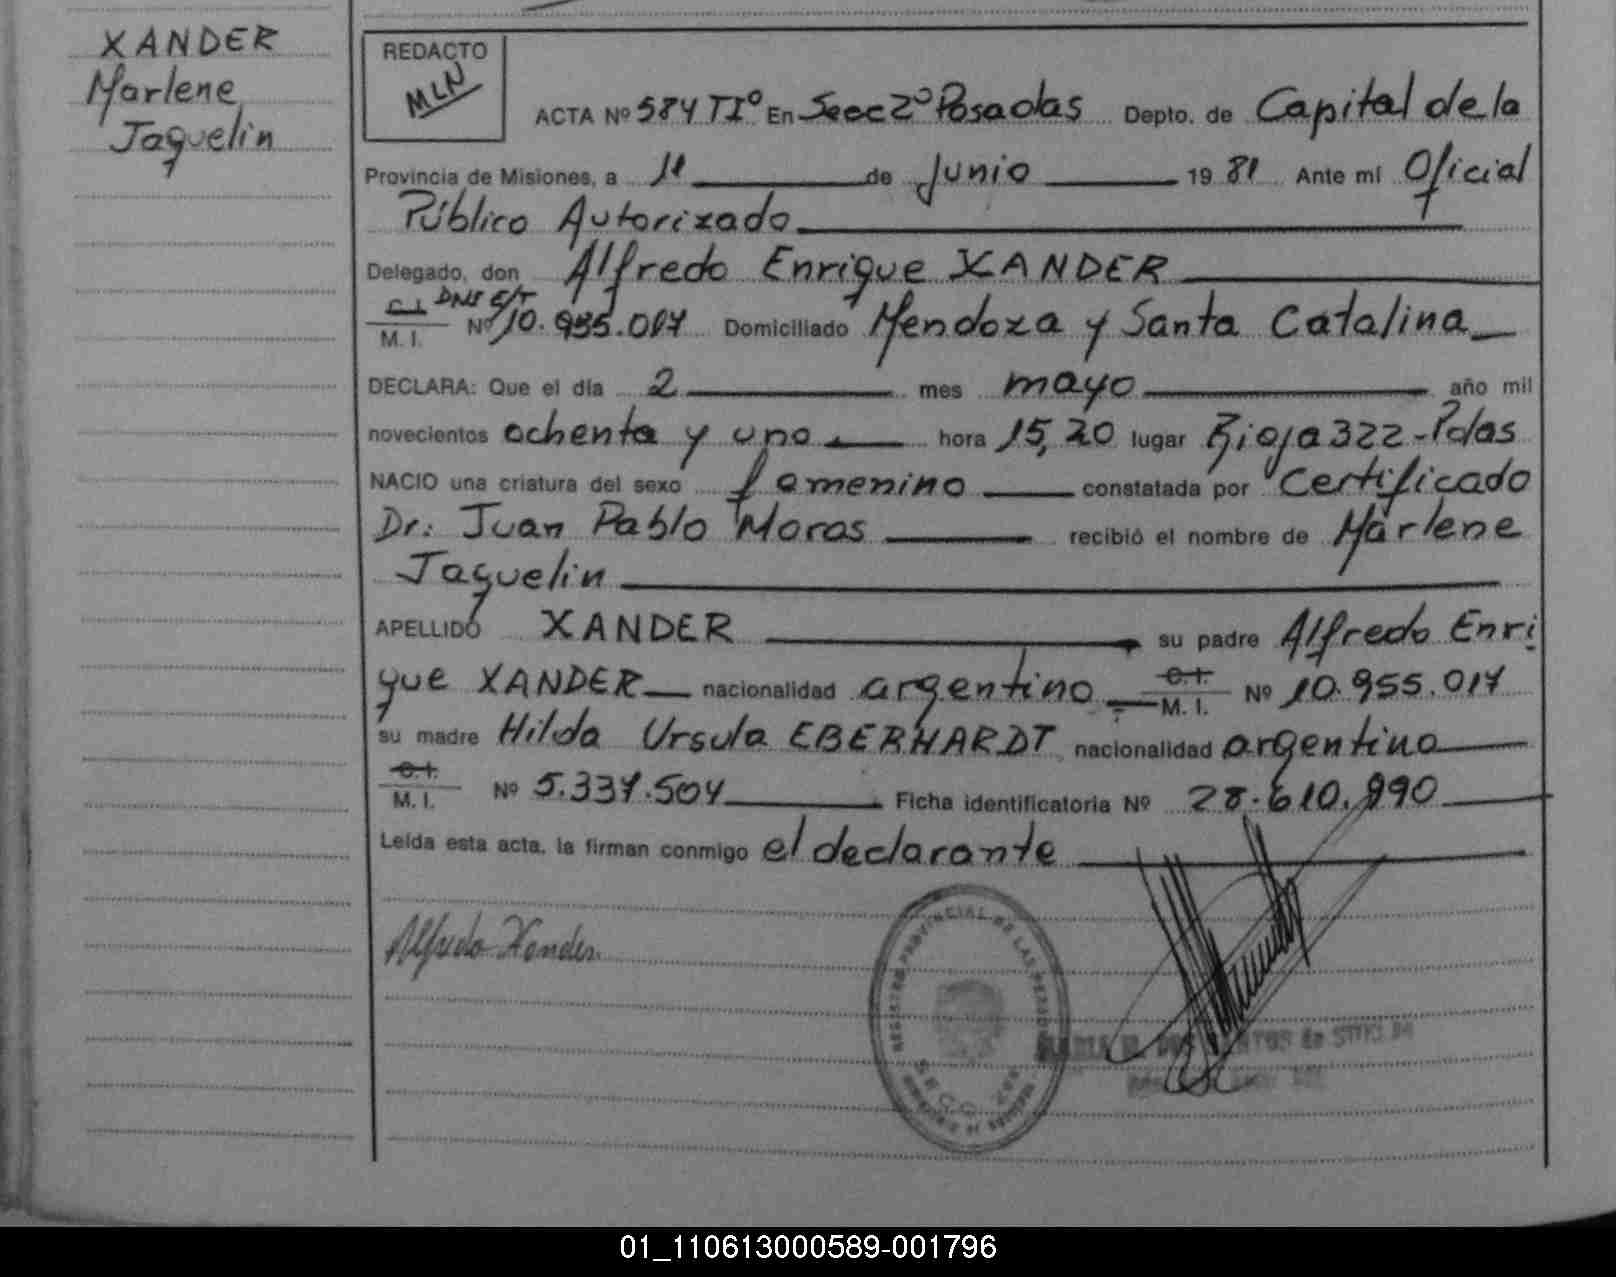 XANDER
Marlene
Jaquelin
REDACTO
MLN
ACTA Nº 584 TIº En Secc 2º Posadas Depto. de Capital de la
Provincia de Misiones, a 11 de Junio 1981 Ante mi Oficial
Público Autorizado
Delegado, don Alfredo Enrique XANDER
C.I. DNI E/T
M. I. Nº 10.955.017 Domiciliado Mendoza y Santa Catalina
DECLARA: Que el día 2 mes mayo año mil
novecientos ochenta y uno hora 15,20 lugar Rioja 322 - Pdas
NACIO una criatura del sexo femenino constatada por Certificado
Dr: Juan Pablo Moras recibió el nombre de Marlene
Jaquelin
APELLIDO XANDER su padre Alfredo Enri
que XANDER nacionalidad argentino C.I. M. I. Nº 10.955.017
su madre Hilda Ursula EBERHARDT nacionalidad argentina
C.I. M. I. Nº 5.337.504 Ficha identificatoria Nº 28.610.990
Leída esta acta, la firman conmigo el declarante
Alfredo Xander
REGISTRO PROVINCIAL DE LAS PERSONAS
SECC.
01_110613000589-001796